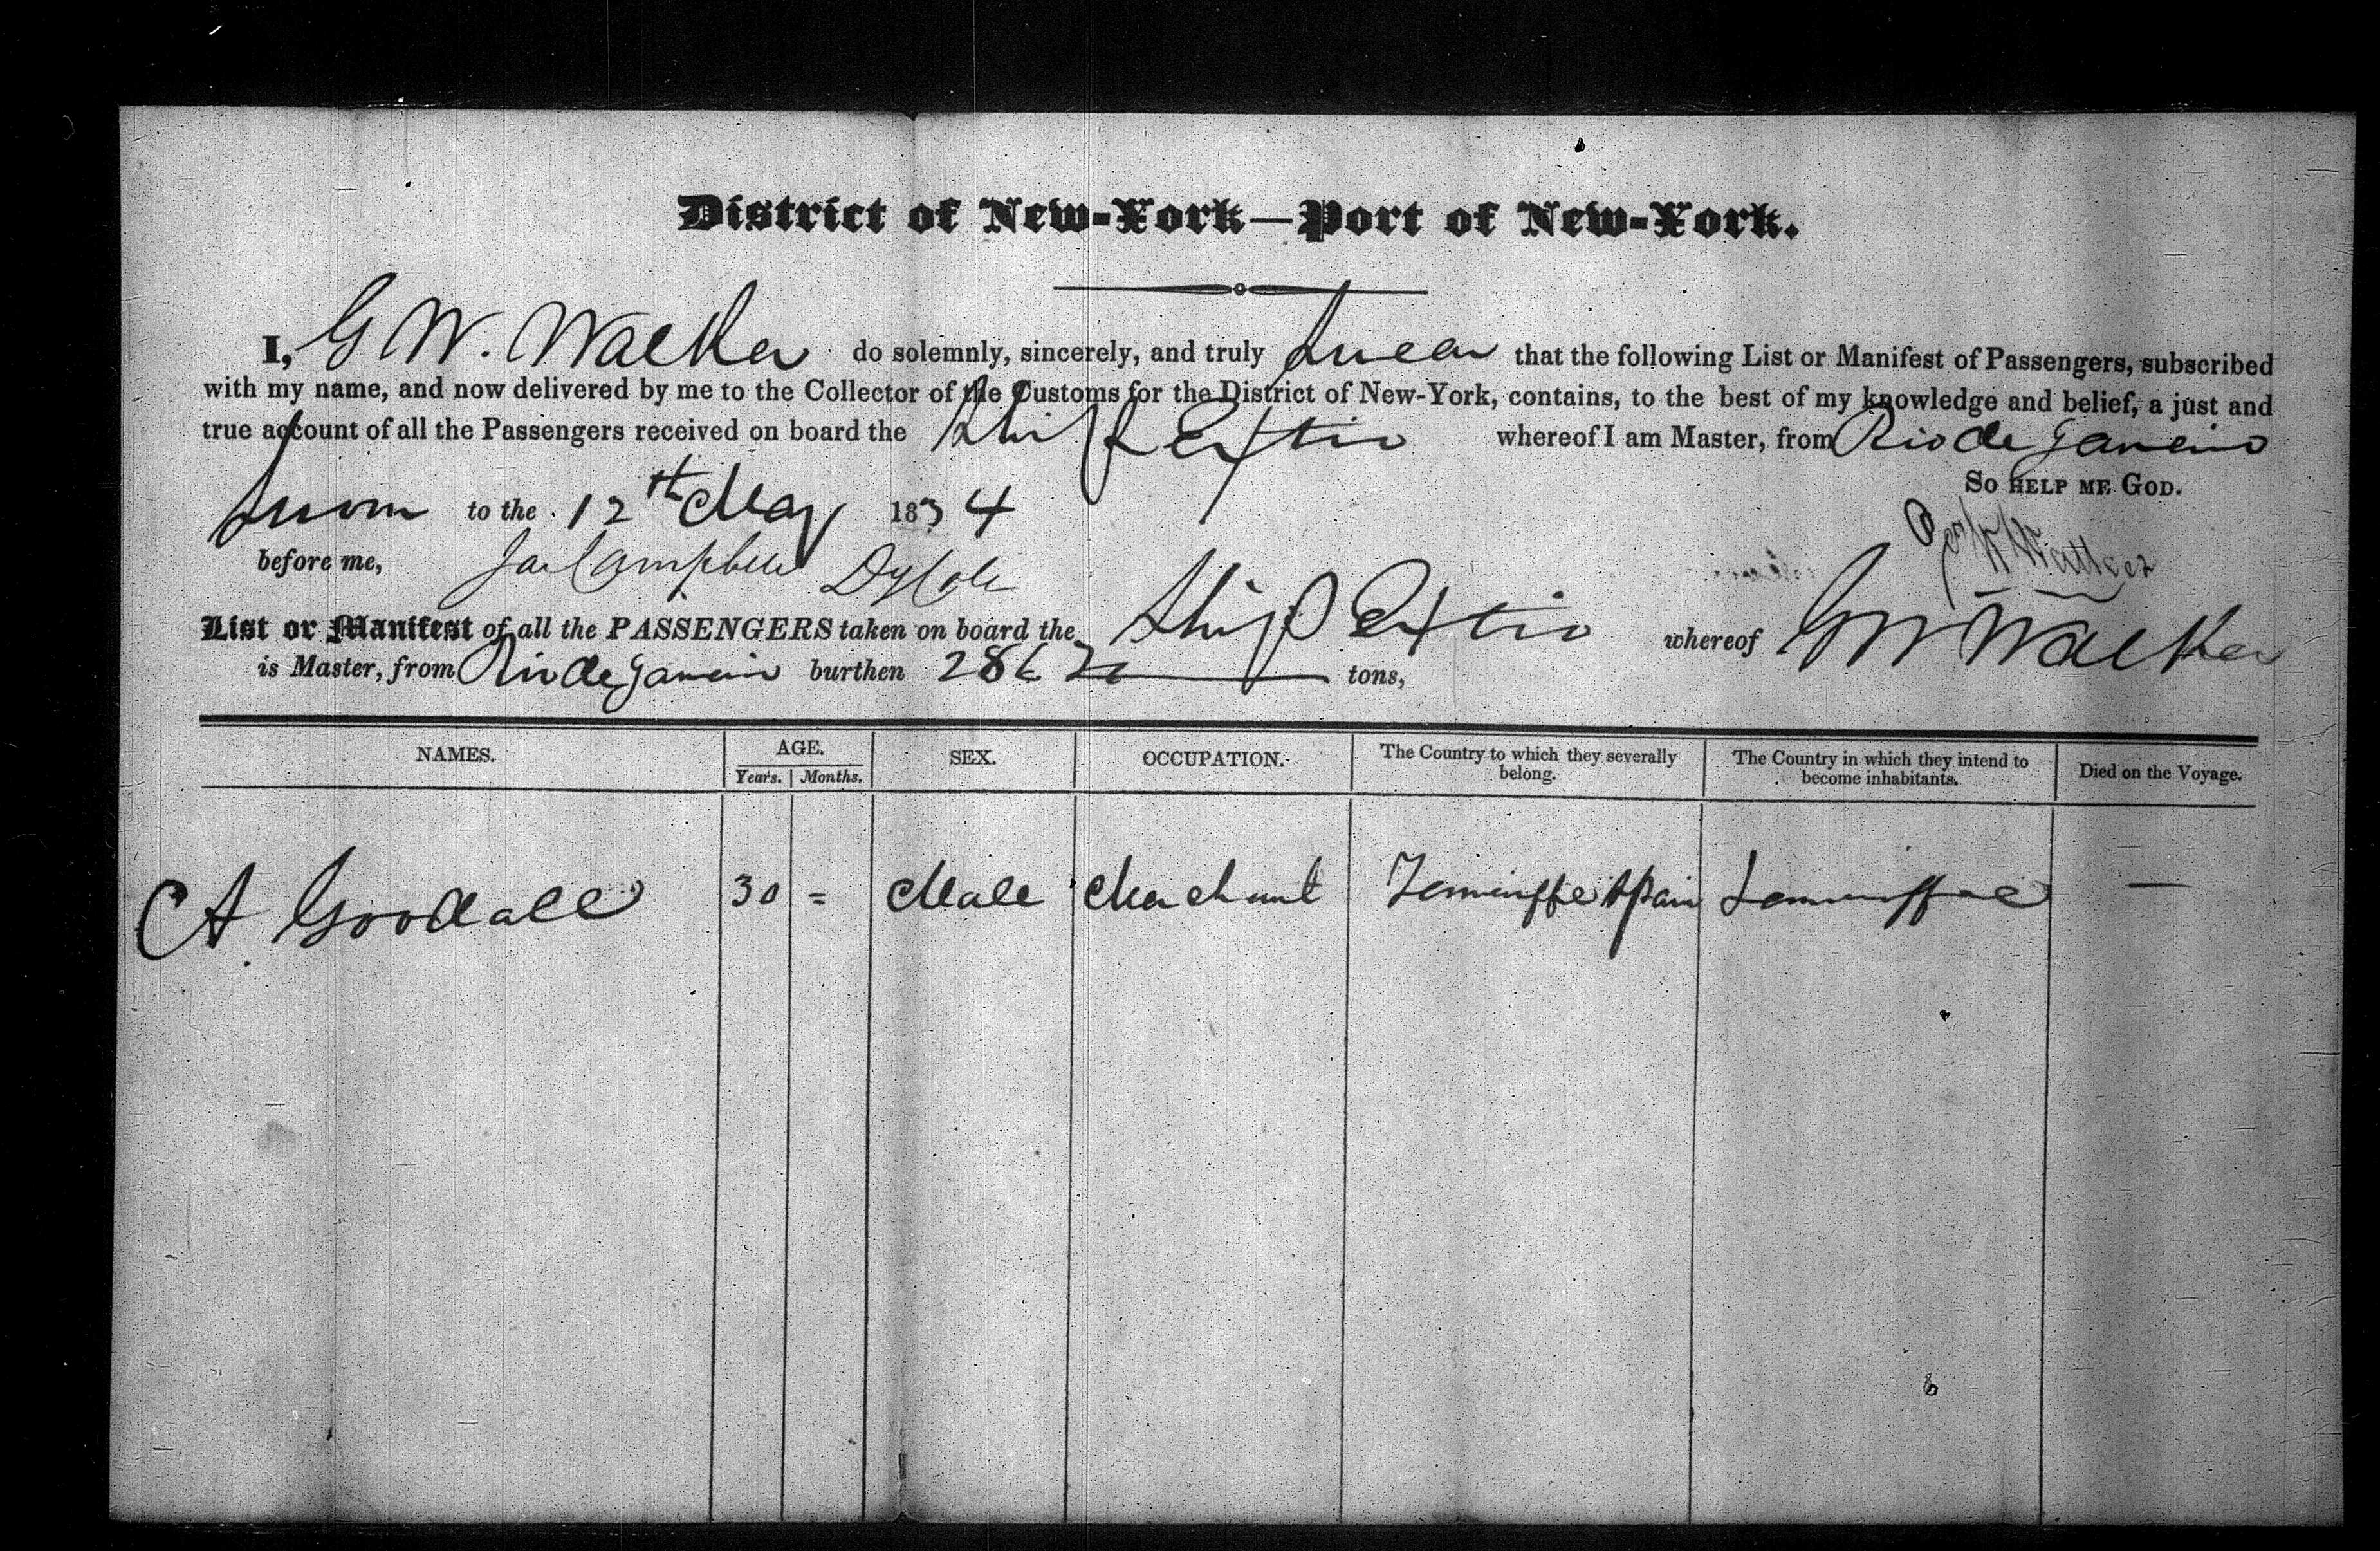 District of New-York—Port of New-York.
I, G W. Walker do solemnly, sincerely, and truly swear that the following List or Manifest of Passengers, subscribed
with my name, and now delivered by me to the Collector of the Customs for the District of New-York, contains, to the best of my knowledge and belief, a just and
true account of all the Passengers received on board the Ship whereof I am Master, from Rio de Janeiro
So HELP ME GOD.
Sworn to the 12th May 1834
before me, Jas Campbell
Geo W Walker
List or Manifest of all the PASSENGERS taken on board the Ship whereof G W Walker
is Master, from Rio de Janeiro burthen tons,
NAMES. AGE. SEX. OCCUPATION. The Country to which they severally belong. The Country in which they intend to become inhabitants. Died on the Voyage.
Years. Months.
A. Goodall 30 = Male Merchant Tenneriffe Spain Tenneriffee —